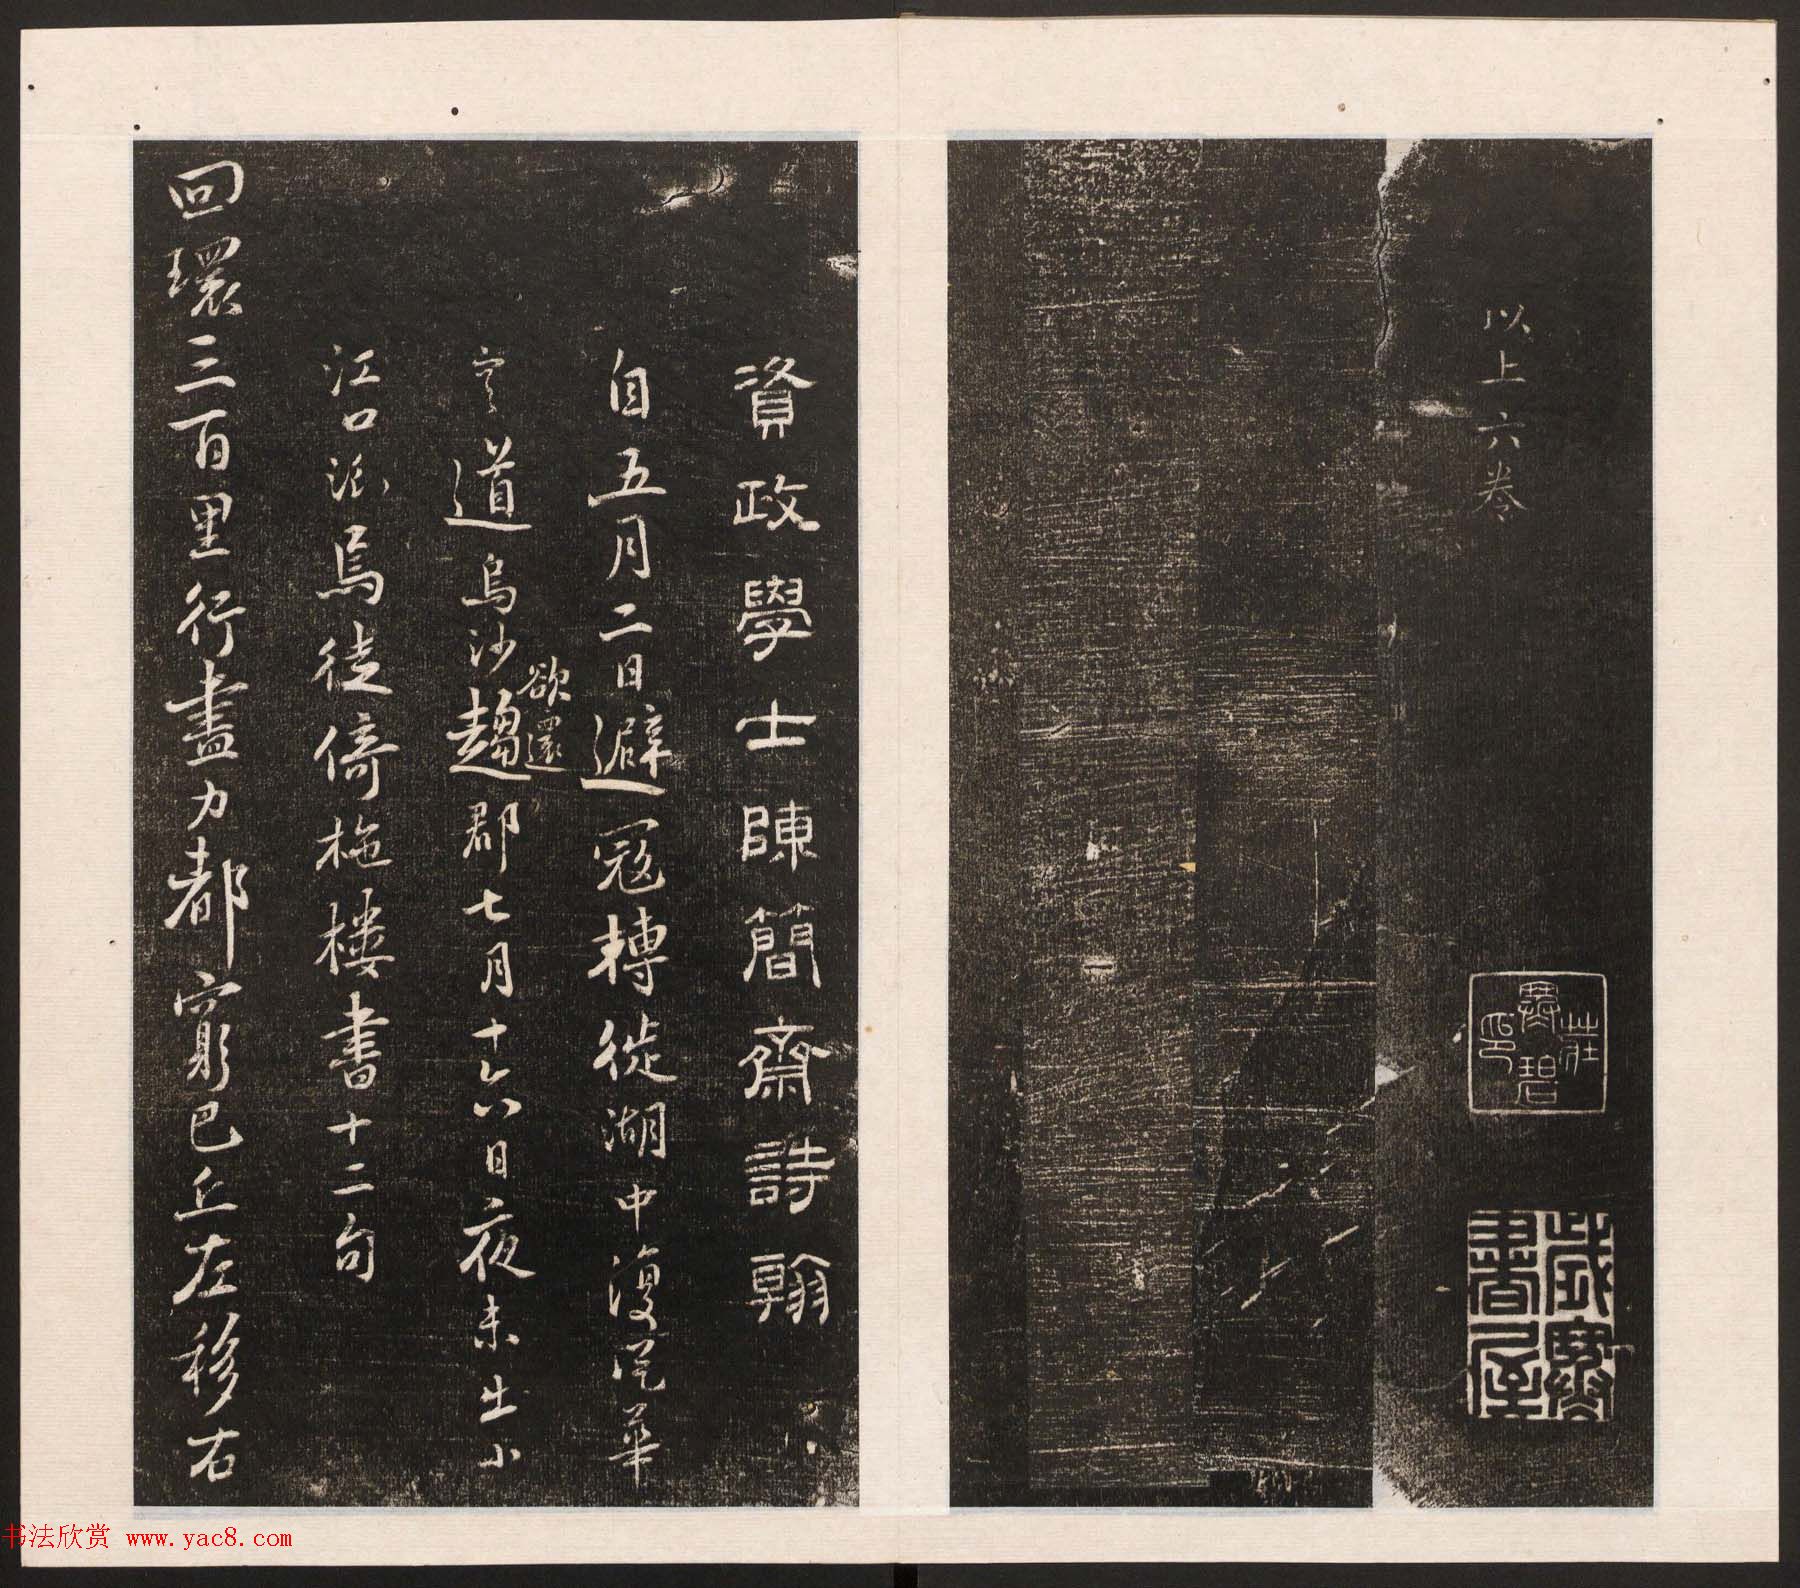 以上六卷
莊虎碧印
歲寒書屋
資政學士陳簡齋詩翰
自五月二日避寇轉徙湖中復從華
容道烏沙欲還趨郡七月十六日夜未出小
江口泒焉徒倚柂樓書十二句
回環三百里行盡力都窮巴丘左移右
书法欣赏 www.yac8.com